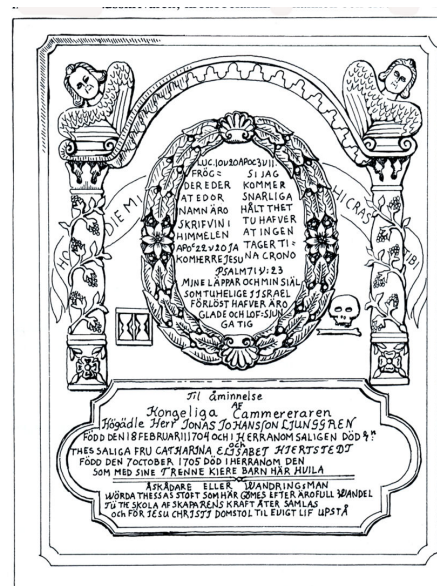 HO DIE MI
HI CRAS IBI
LUC. 10 V 20 APOC 3 V 11.
FRÖG= SI JAG
DER EDER KOMMER
AT EDOR SNARLIGA
NAMN ÄRO HÅLT THET
SKRIFVIN I TU HAFVER
HIMMELEN AT INGEN
APOC 22 V 20 JA TAGER TI=
KOM HERRE JESU NA CRONO
PSALM 71 V: 23
MINE LÄPPAR OCH MIN SIÄL
SOM TU HELIGE ISRAEL
FÖRLÖST HAFVER ÄRO
GLADE OCH LOF=SJUN
GA TIG
Til åminnelse
AF
Kongeliga Cammereraren
Högädle Herr JONAS JOHANSSON LJUNGGREN
FÖDD DEN 18 FEBRUARII 1704 OCH I HERRANOM SALIGEN DÖD
OCH
THES SALIGA FRU CATHARINA ELISABET HIERTSTEDT
FÖDD DEN 7 OCTOBER 1705 DÖD I HERRANOM DEN
SOM MED SINE TRENNE KIERE BARN HÄR HUILA
ÅSKÅDARE ELLER WANDRINGSMAN
WÖRDA THESSAS STOFT SOM HÄR GÖMES EFTER ÄROFULL WANDEL
TIL THE SKOLA AF SKAPARENS KRAFT ÅTER SAMLAS
och FÖR JESU CHRISTI DOMSTOL TIL EVIGT LIF UPSTÅ